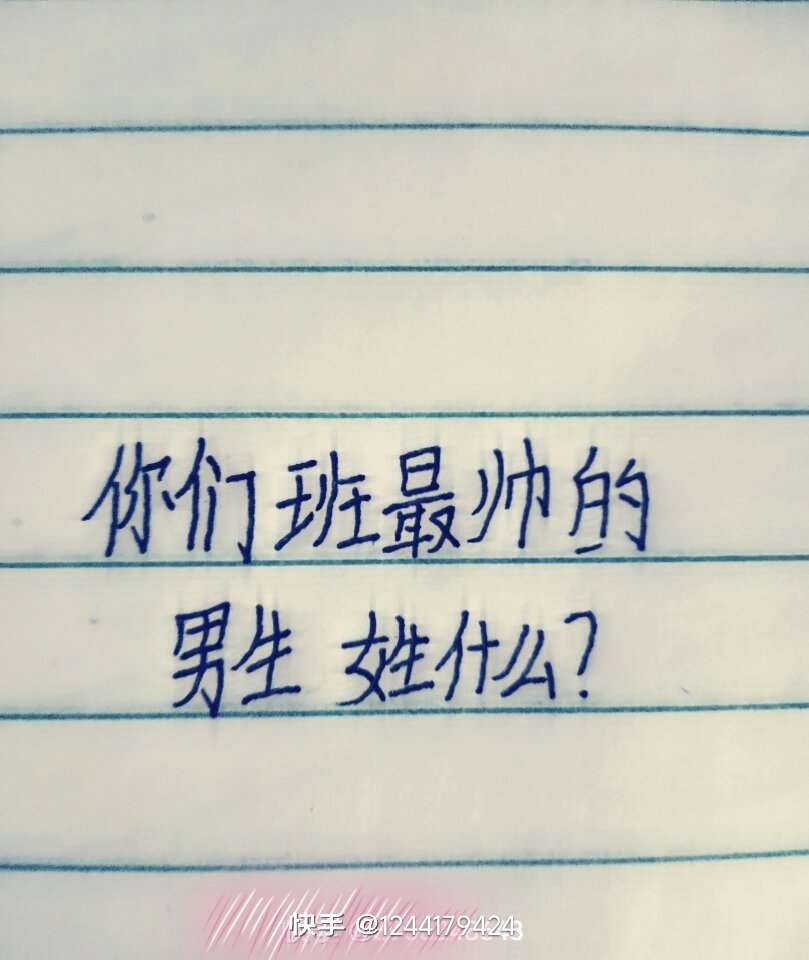 你们班最帅的
男生姓什么?
快手 @1244179424